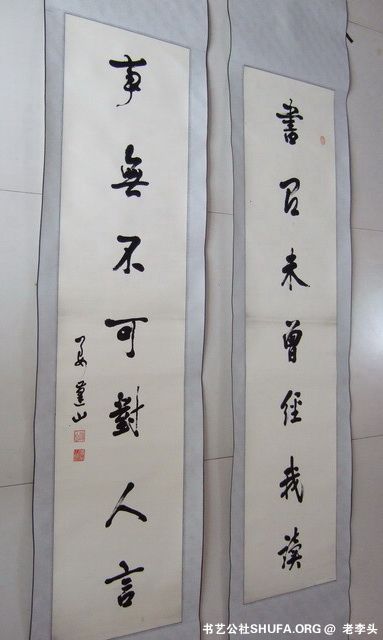 書有未曾經我讀
事無不可對人言
山
书艺公社SHUFA.ORG @ 老李头